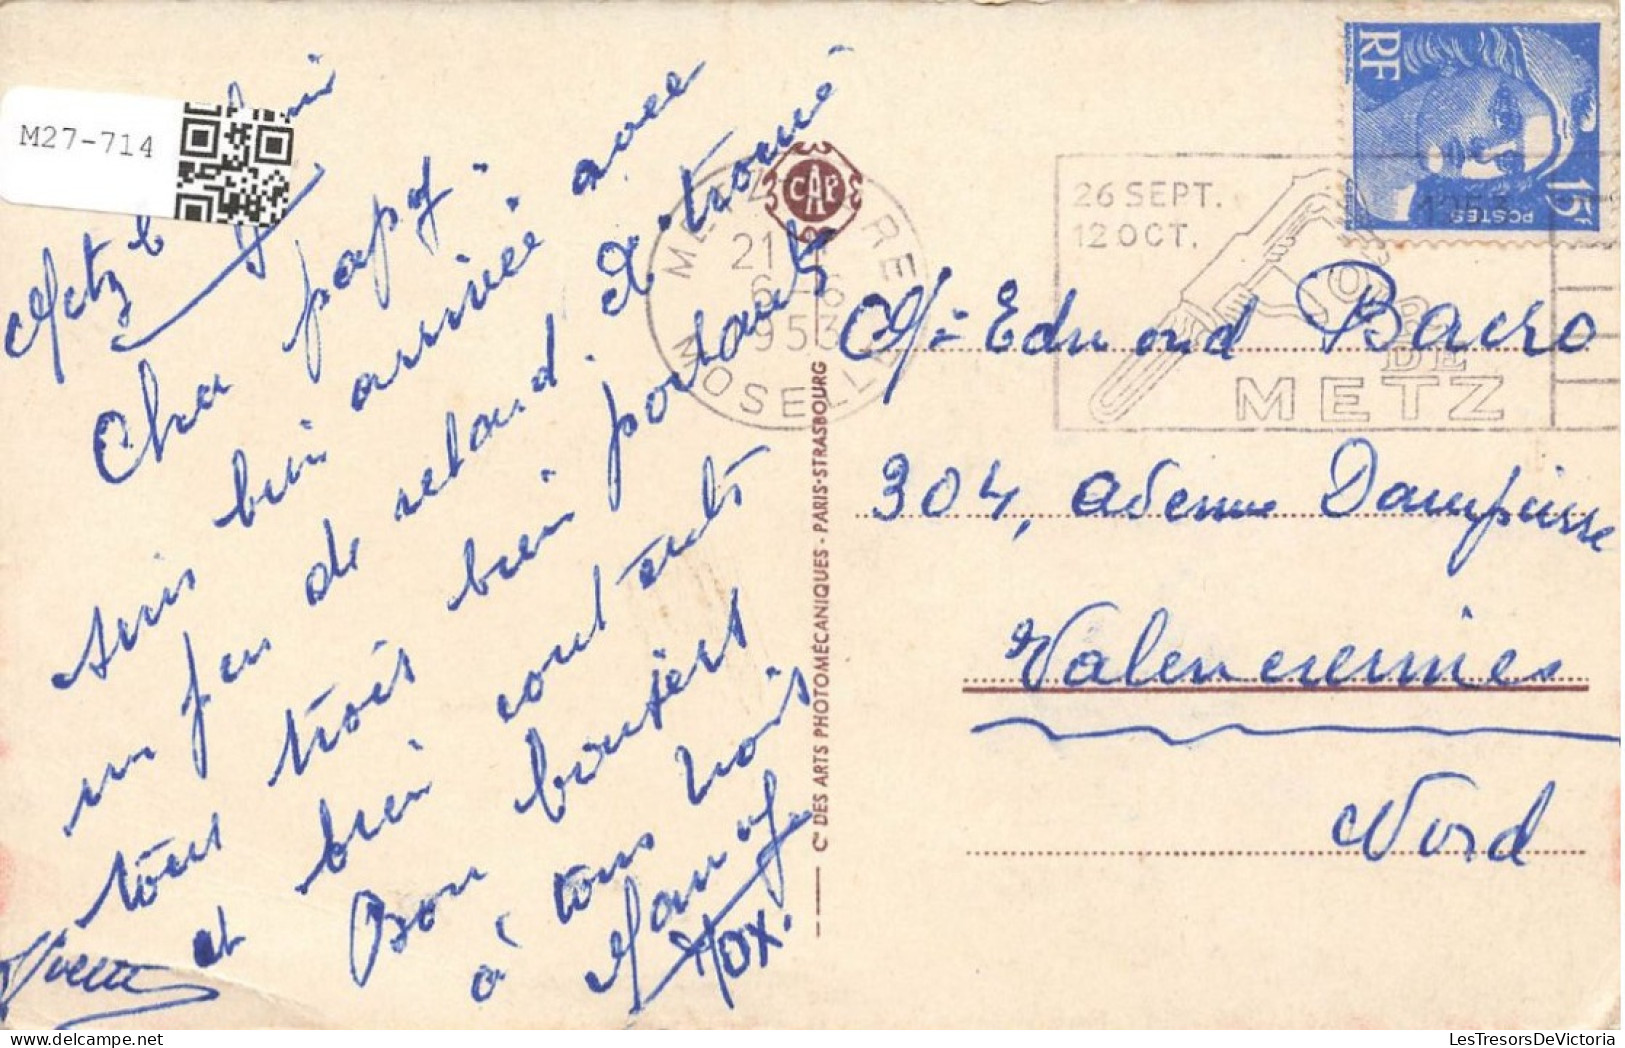 M27-714
Metz le 6 juin
Cher papy
suis bien arrivée avec
un peu de retard. Ai trouvé
tous trois bien portants
et bien contents
Bon baisers
à tous trois
Mamy
Yvette
MOX.
CAP
Cie DES ARTS PHOTOMÉCANIQUES - PARIS-STRASBOURG
METZ GARE
21
6-6
1953
MOSELLE
26 SEPT.
12 OCT.
1953
FOIRE
DE
METZ
RF
POSTES
15F
Mr Edmond Bacro
304, Avenue Dampierre
Valenciennes
Nord
LesTresorsDeVictoria.com